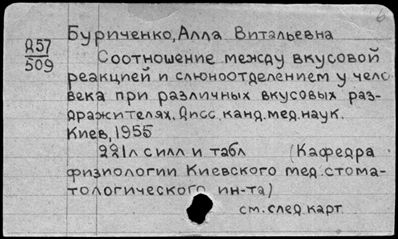 Буриченко, Алла Витальевна
Д57
509
Соотношение между вкусовой
реакцией и слюноотделением у чело
века при различных вкусовых раз-
дражителях. Дисс. канд. мед. наук.
Киев, 1955
221л с илл и табл (Кафедра
физиологии Киевского мед. стома-
тологического ин-та)
см. след карт